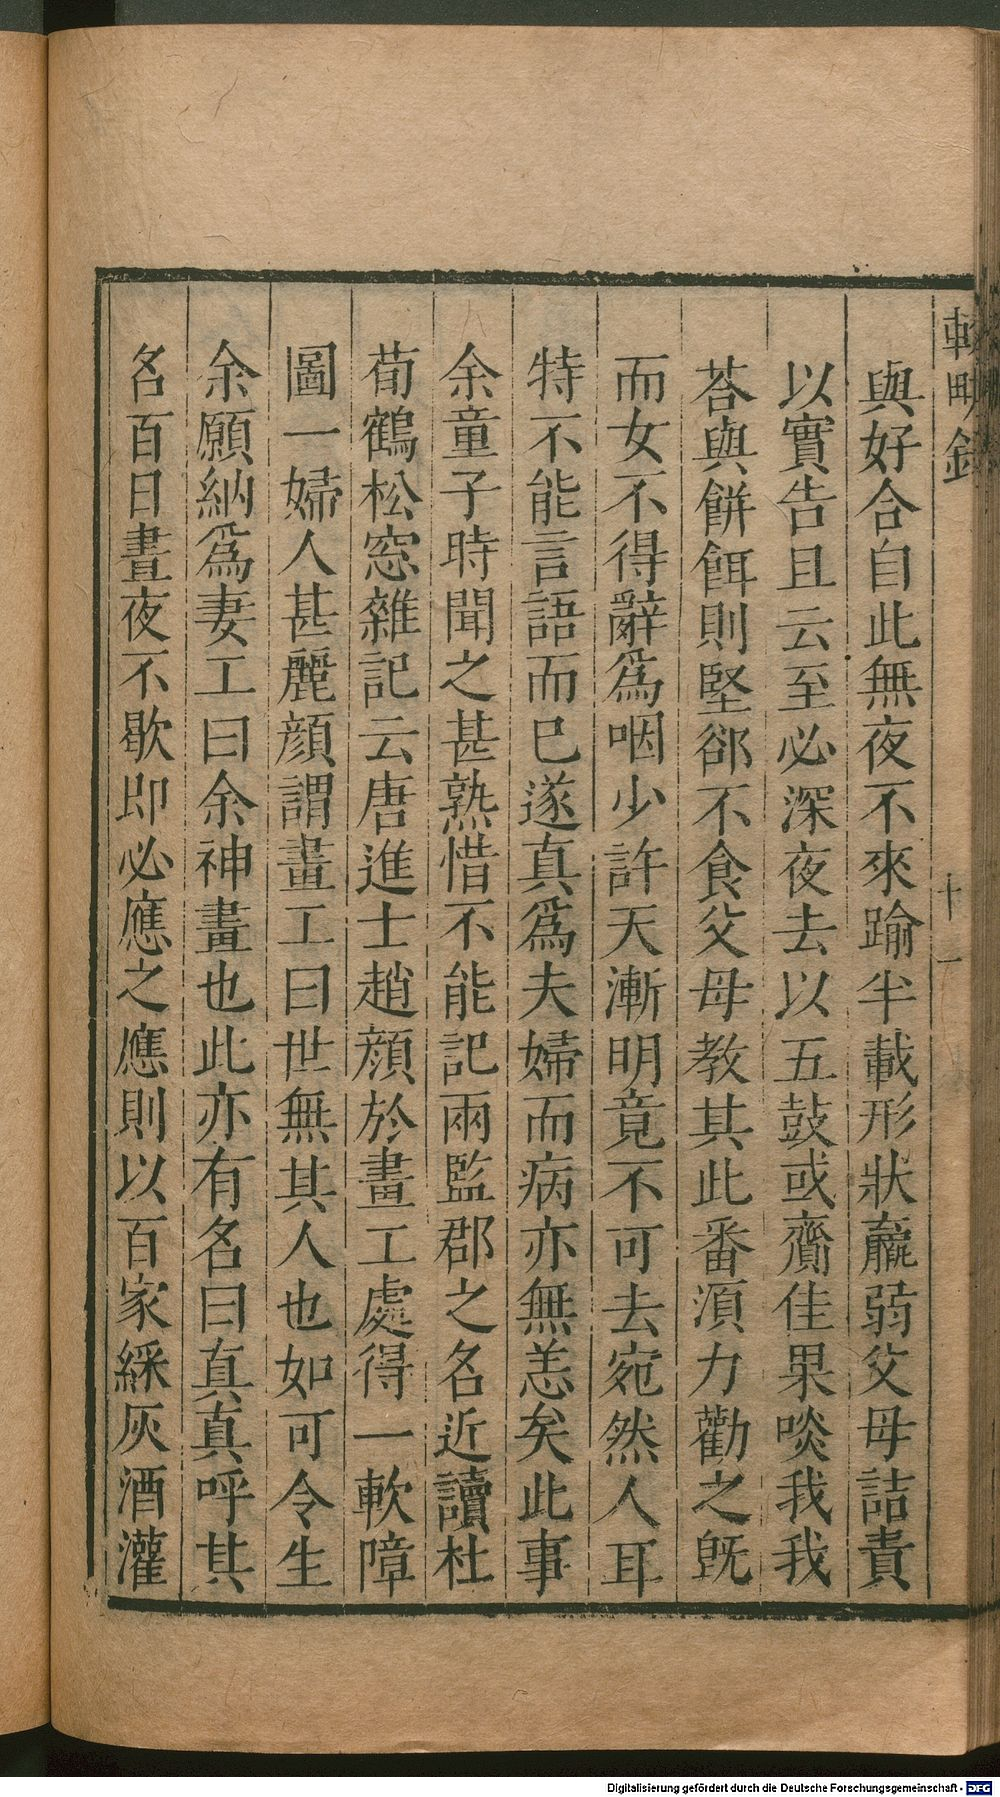 輟畊錄
十一
與好合自此無夜不來踰半載形狀羸弱父母詰責
以實告且云至必深夜去以五鼓或齎佳果啖我我
荅與餅餌則堅郤不食父母教其此番湏力勸之旣
而女不得辭爲咽少許天漸明竟不可去宛然人耳
特不能言語而已遂真爲夫婦而病亦無恙矣此事
余童子時聞之甚熟惜不能記兩監郡之名近讀杜
荀鶴松窓雜記云唐進士趙顏於畫工處得一軟障
圖一婦人甚麗顔謂畫工曰世無其人也如可令生
余願納爲妻工曰余神畫也此亦有名曰真真呼其
名百日晝夜不歇即必應之應則以百家綵灰酒灌
Digitalisierung gefördert durch die Deutsche Forschungsgemeinschaft - DFG